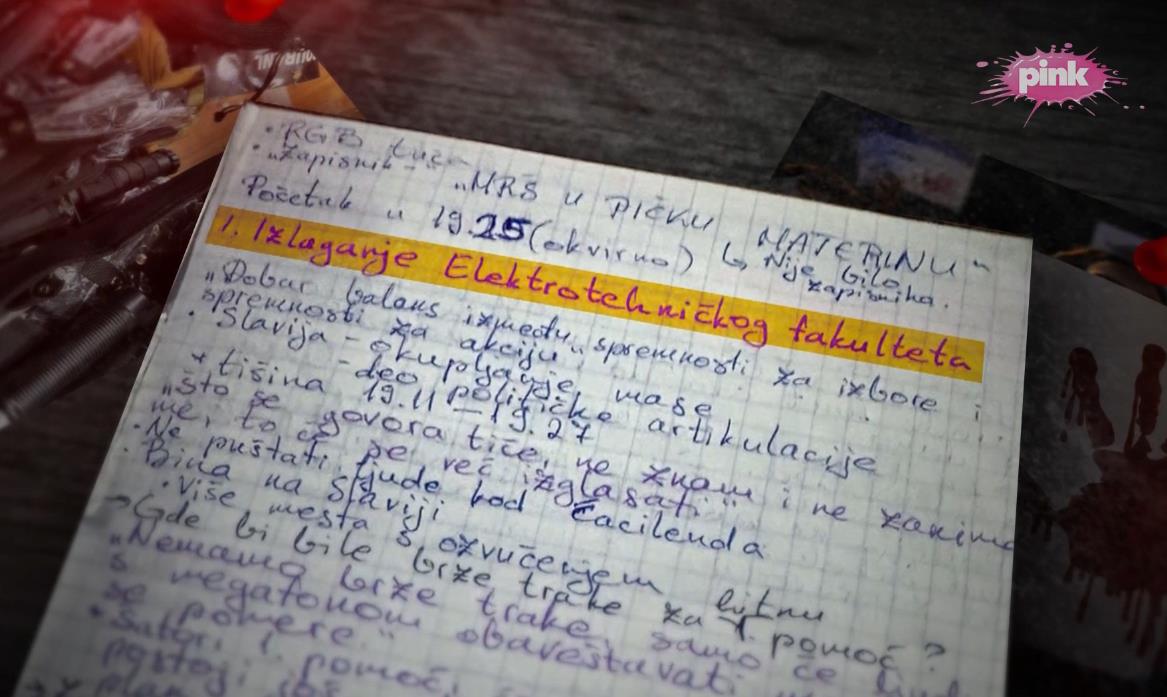 pink
• RGB tuča
• „Zapisnik" - „MRŠ U PIČKU MATERINU"
Početak u 19.25 (okvirno) ↳ Nije bilo zapisnika.
1. Izlaganje Elektrotehničkog fakulteta
„Dobar balans između spremnosti za izbore i
spremnosti za akciju"
• Slavija - okupljanje mase
- deo političke artikulacije
* tišina 19.11 – 19.27
„Što se govora tiče, ne znam i ne zanima
me, to će se već izglasati"
• Ne puštati ljude kod Ćacilenda
• Bina na Slaviji
• Više mesta s ozvučenjem
→ Gde bi bile brze trake za hitnu pomoć?
„Nemamo brze trake, samo će ljudi
s megafonom obaveštavati
se pomere."
• Šatori 1. pomoći,
postoji još
plan